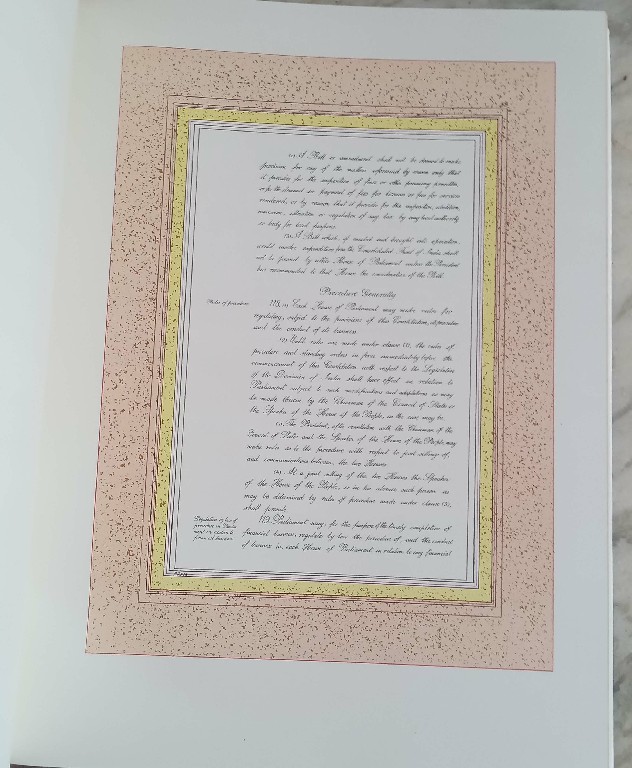 (2) A Bill or amendment shall not be deemed to make
provision for any of the matters aforesaid by reason only that
it provides for the imposition of fines or other pecuniary penalties,
or for the demand or payment of fees for licences or fees for services
rendered, or by reason that it provides for the imposition, abolition,
remission, alteration or regulation of any tax by any local authority
or body for local purposes.
(3) A Bill which, if enacted and brought into operation,
would involve expenditure from the Consolidated Fund of India shall
not be passed by either House of Parliament unless the President
has recommended to that House the consideration of the Bill.
Procedure Generally
Rules of procedure.
118. (1) Each House of Parliament may make rules for
regulating, subject to the provisions of this Constitution, its procedure
and the conduct of its business.
(2) Until rules are made under clause (1), the rules of
procedure and standing orders in force immediately before the
commencement of this Constitution with respect to the Legislature
of the Dominion of India shall have effect in relation to
Parliament subject to such modifications and adaptations as may
be made therein by the Chairman of the Council of States or
the Speaker of the House of the People, as the case may be.
(3) The President, after consultation with the Chairman of the
Council of States and the Speaker of the House of the People, may
make rules as to the procedure with respect to joint sittings of,
and communications between, the two Houses.
(4) At a joint sitting of the two Houses the Speaker
of the House of the People, or in his absence such person as
may be determined by rules of procedure made under clause (3),
shall preside.
Regulation by law of
procedure in Parlia-
ment in relation to
financial business.
119. Parliament may, for the purpose of the timely completion of
financial business, regulate by law the procedure of, and the conduct
of business in, each House of Parliament in relation to any financial